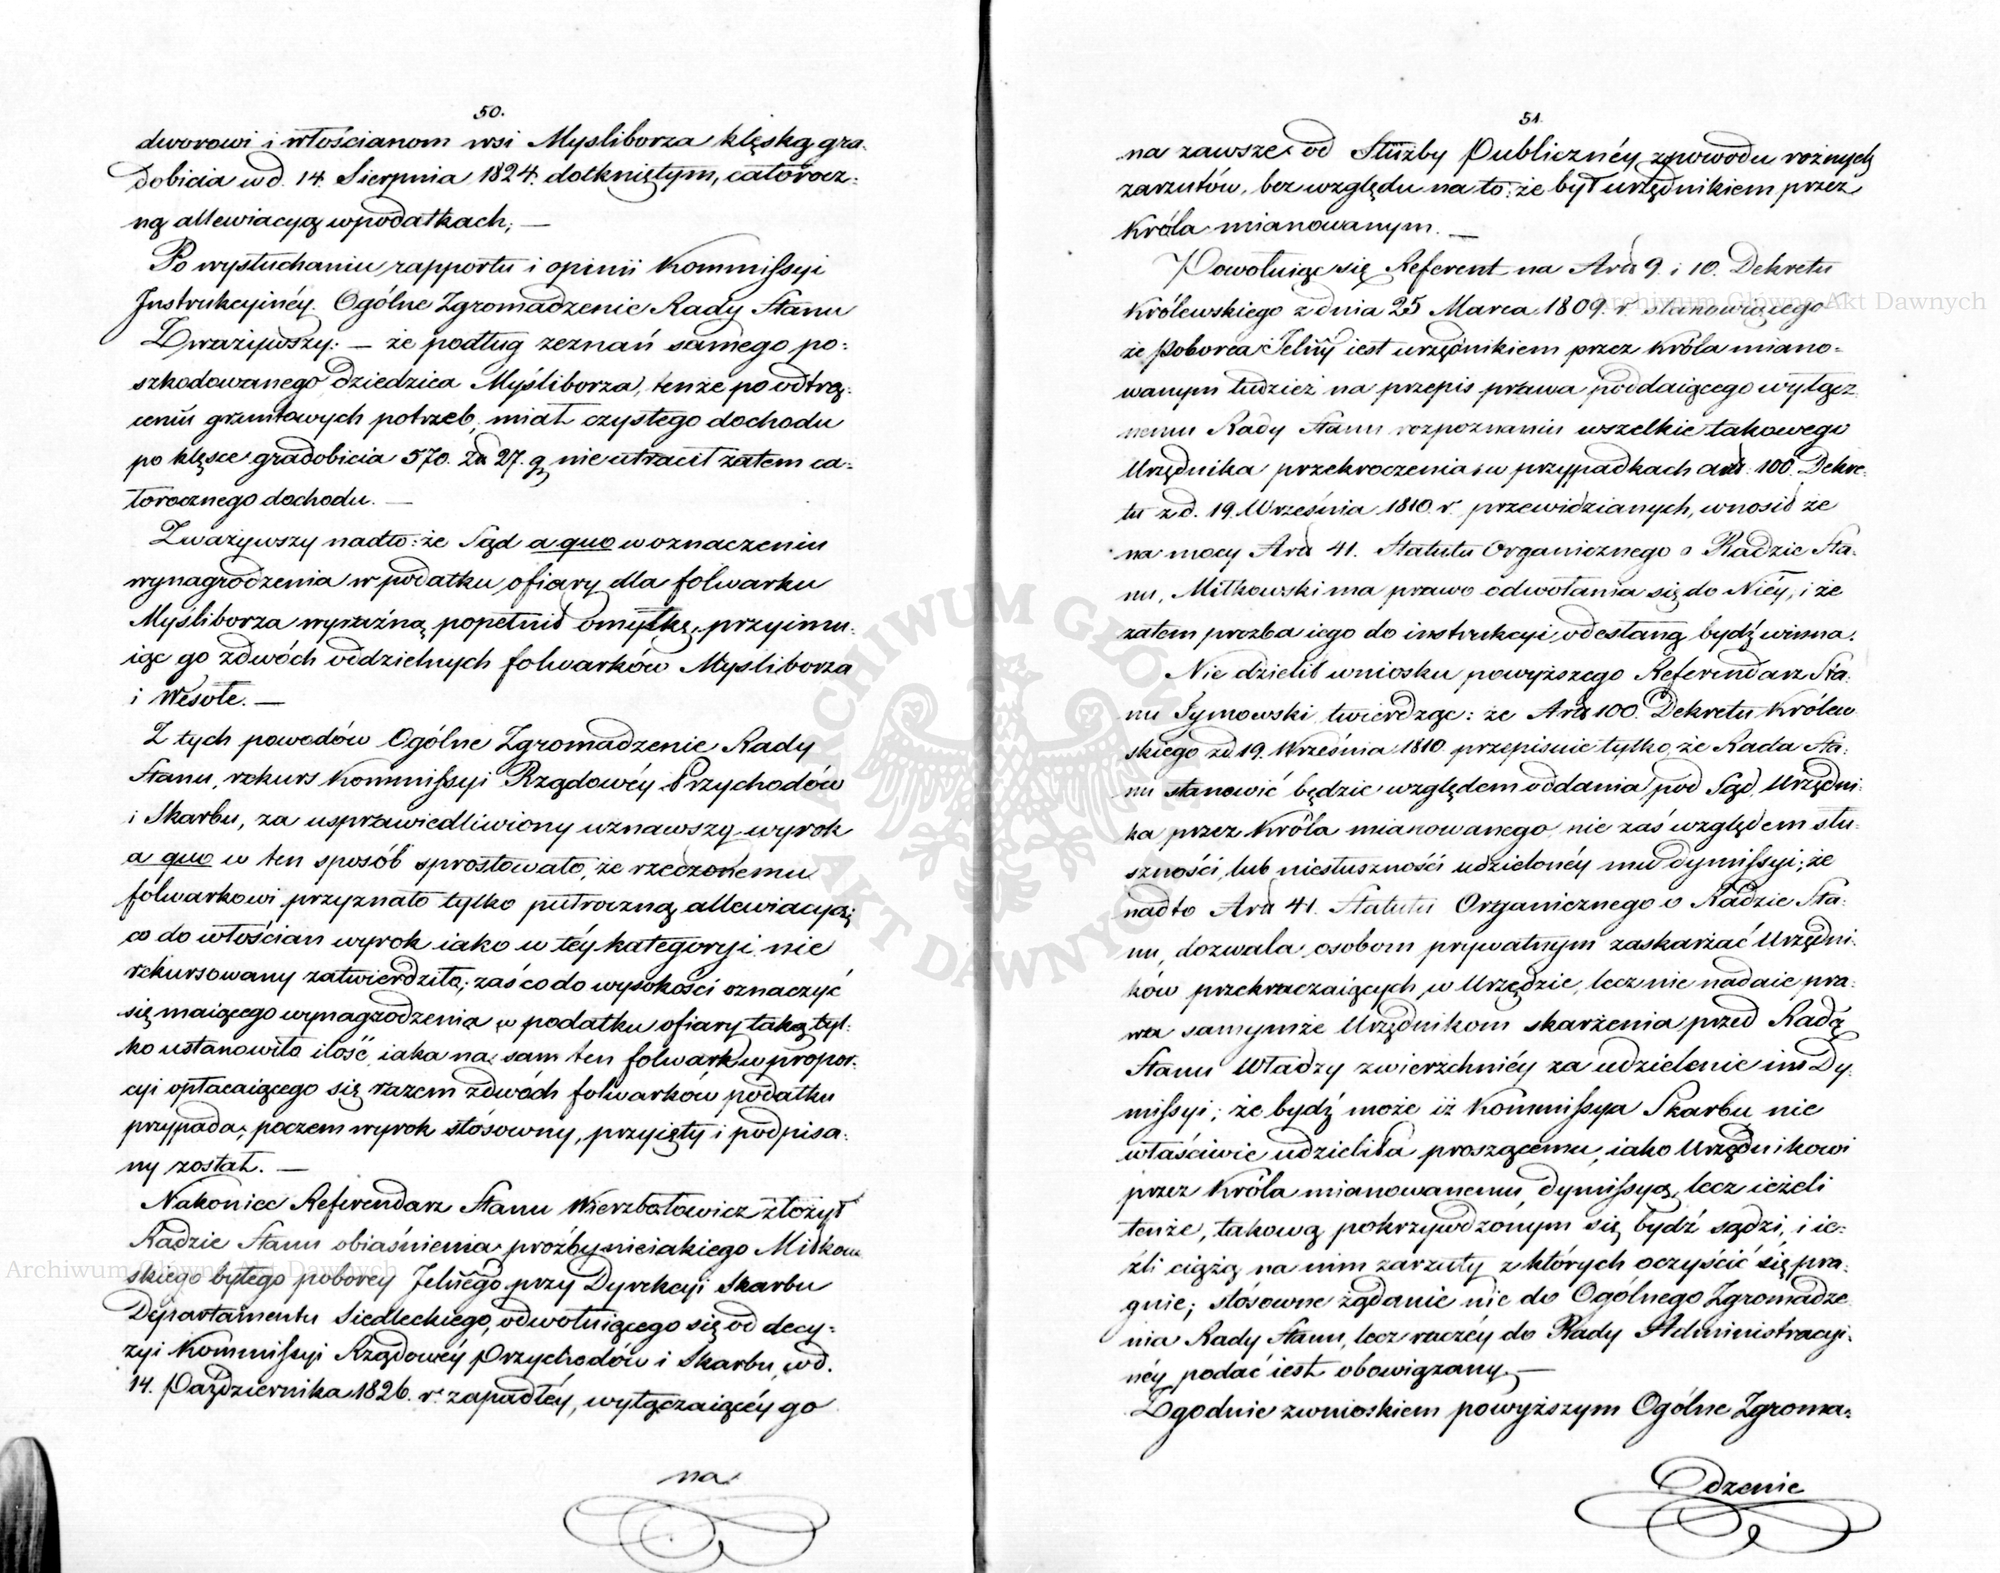 50.
dworowi i włościanom wsi Mysliborza klęską gra-
dobicia w d. 14. Sierpnia 1824. dotkniętym, całorocz=
ną allewiacyą w podatkach; —
Po wysłuchaniu rapportu i opinii Kommissyi
Instrukcyinéy. Ogólne Zgromadzenie Rady Stanu
Zważywszy: — że podług zeznań samego po=
szkodowanego dziedzica Myśliborza, tenże po odtrą=
ceniu gruntowych potrzeb, miał czystego dochodu
po klęsce gradobicia 570. Zł 27. g. nie utracił zatem ca=
łorocznego dochodu. —
Zważywszy nadto: że Sąd a quo w oznaczeniu
wynagrodzenia w podatku ofiary dla folwarku
Myśliborza wyraźną popełnił omyłkę, przyimu-
iąc go z dwóch oddzielnych folwarków Mysliborza
i Wesołe. —
Z tych powodów Ogólne Zgromadzenie Rady
Stanu, rekurs Kommissyi Rządowéy Przychodów
i Skarbu, za usprawiedliwiony uznawszy wyrok
a quo w ten sposób sprostowało, że rzeczonemu
folwarkowi przyznało tylko půłroczną allewiacyą;
co do włościan wyrok iako w téy kategoryi nie
rekursowany zatwierdziło; zaś co do wysokości oznaczyć
się maiącego wynagrodzenia w podatku ofiary taką tyl-
ko ustanowiło ilość, iaka na sam ten folwark w propor-
cyi opłacaiącego się razem z dwóch folwarków podatku
przypada; poczem wyrok stósowny, przyięty i podpisa-
ny został. —
Nakoniec Referendarz Stanu Wierzbołowicz złożył
Radzie Stanu obiaśnienia prozby nieiakiego Miłkow
skiego byłego poborcy Jelnego przy Dyrekcyi Skarbu
Departamentu Siedleckiego, odwołuiącego się od decy-
zyi Kommissyi Rządowéy Przychodów i Skarbu, w d.
14. Października 1826. r. zapadłéy, wyłączaiącéy go
na
51.
na zawsze od Służby Publicznéy z powodu rożnych
zarzutów, bez względu na to: że był urzędnikiem przez
Króla mianowanym. —
Powołuiąc się Referent na Artt 9. i 10. Dekretu
Królewskiego z dnia 25 Marca 1809. r. stanowiącego
że Poborca Jelny iest urzędnikiem przez Króla miano-
wanym tudzież na przepis prawa poddaiącego wyłącz
nemu Rady Stanu rozpoznaniu wszelkie takowego
Urzędnika przekroczenia w przypadkach artt. 100. Dekre-
tu z d. 19. Września 1810. r. przewidzianych, wnosił że
na mocy Artt 41. Statutu Organicznego o Radzie Sta-
nu, Miłkowski ma prawo odwołania się do Niéy, i że
zatem prozba iego do instrukcyi odesłaną bydź winna.
Nie dzielił wniosku powyższego Referendarz Sta-
nu Tymowski, twierdząc: że Artt 100. Dekretu Królew
skiego z d. 19. Września 1810 przepisuie tylko, że Rada Sta-
nu stanowić będzie względem oddania pod Sąd Urzędni-
ka przez Króla mianowanego nie zaś względem słu-
szności, lub niesłuszności udzielonéy mu dymissyi; że
nadto Artt 41. Statutu Organicznego o Radzie Sta-
nu, dozwala osobom prywatnym zaskarżać Urzędni-
ków przekraczaiących w Urzędzie, lecz nie nadaie pra-
wa samymże Urzędnikom skarżenia przed Radą
Stanu Władzy zwierzchniéy za udzielenie im Dy-
missyi; że bydź może iż Kommissya Skarbu nie
właściwie udzieliła proszącemu, iako Urzędnikowi
przez Króla mianowanemu, dymissyą, lecz ieżeli
tenże, takową pokrzywdzonym się bydź sądzi, i ie-
żli ciążą na nim zarzuty z których oczyścić się pra-
gnie; stósowne żądanie nie do Ogólnego Zgromadze
nia Rady Stanu, lecz raczéy do Rady Administracyi-
néy podać iest obowiązany. —
Zgodnie z wnioskiem powyższym Ogólne Zgroma-
dzenie
Archiwum Główne Akt Dawnych
Archiwum Główne Akt Dawnych
ARCHIWUM GŁÓWNE AKT DAWNYCH